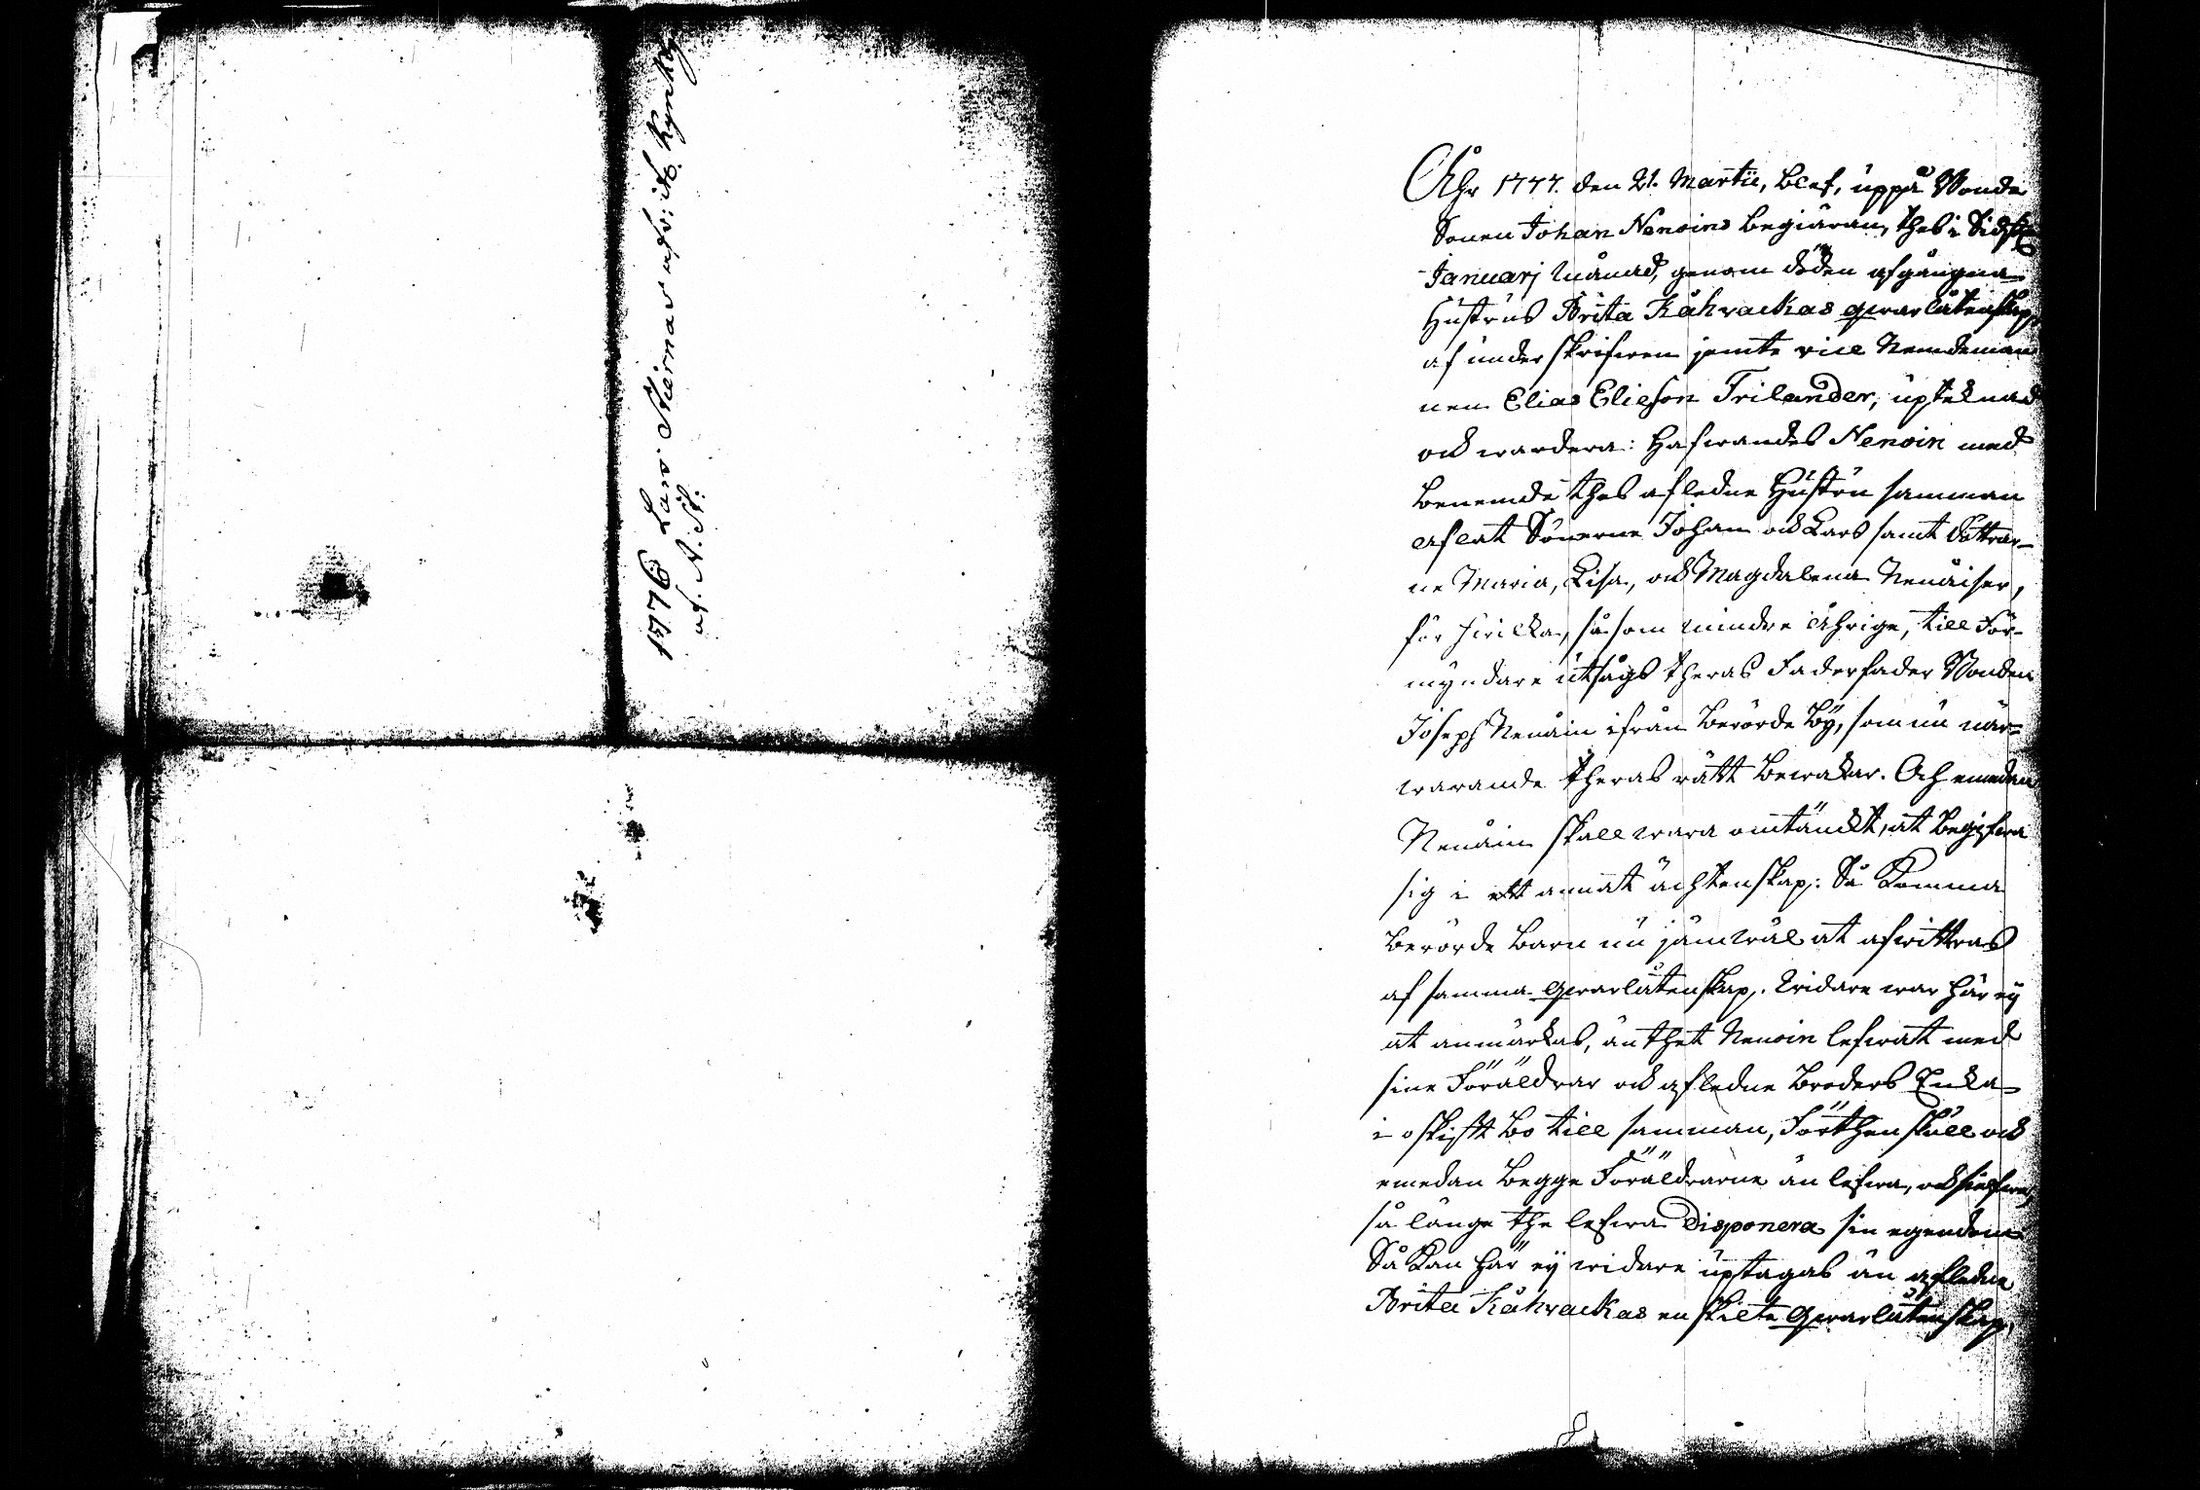 1776 Lars Stiernas
af. N. N:
Åhr 1777. den 21. Martii, blef, uppå Bonde
Sonen Johan Nenoins begiäran, thes i Sidstl.
Januarj Månad, genom döden afgångna
Hustrus Brita Kåhrackas qwarlåtenskap,
af underskrifwen jemte vice Nemdeman
nen Elias Elieson Frilander, upteknad
och wardera: Hafwandes Nenoin med
benemde thes afledne Hustru samman
aflat Sönerne Johan och Lars samt döttrar-
ne Maria, Lisa, och Magdalena Nenäiser,
för hwilcka, såsom Mindre Åhrige, till För-
myndare utsågs theras Faderfader Bonden
Joseph Nenäin ifrån berörde by, som nu när-
warande theras rätt bewakar. Och emedan
Nenäin skall wara omtänckt, at begifwa
sig i ett annat ächtenskap: Så komma
berörde Barn nu jämwäl at afwittras
af samma qwarlåtenskap. Widare war här ej
at anmärkas, än thet Nenoin lefwat med
sine Föräldrar och afledne Broders Enka
i oskift bo till samman, Förthenskull och
emedan begge Föräldrarne än lefwa, och sielfwe,
så länge the lefwa Disponera sin egendom
Så kan här ej widare uptagas än afledne
Brita Kåhrackas enskilte qwarlåtenskap,